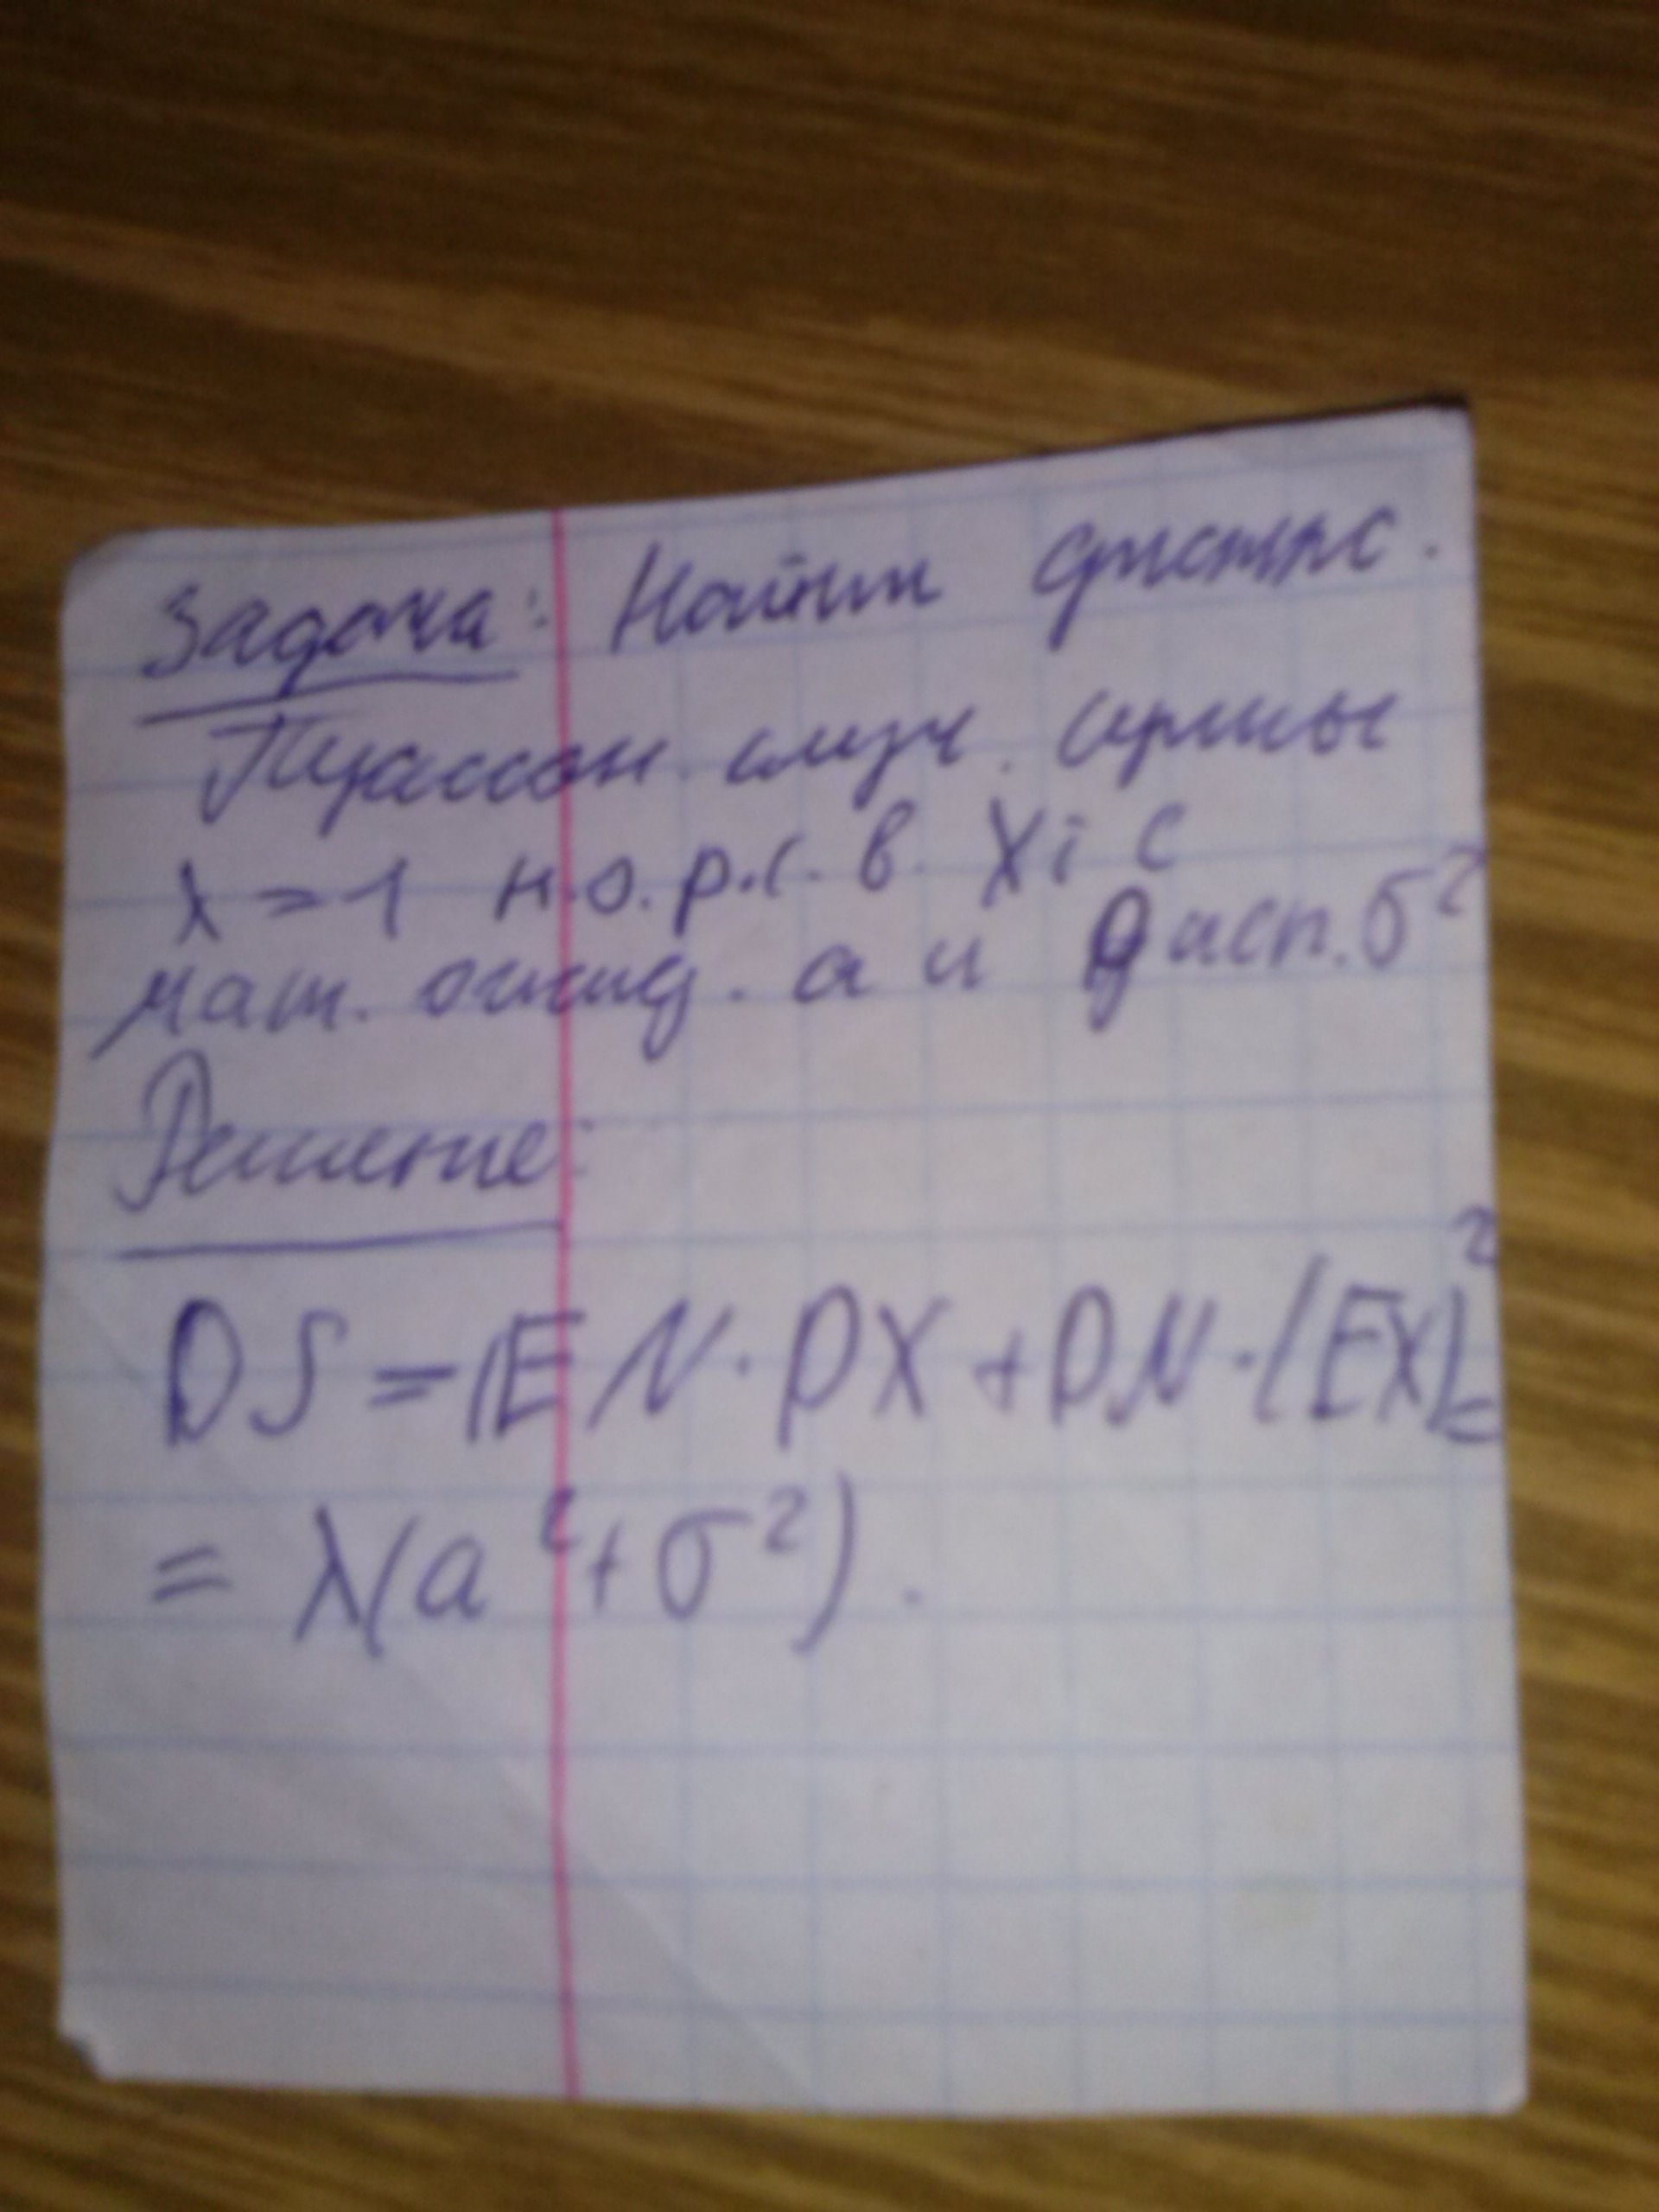 Задача: Найти дисперс.
Пуассон. случ. суммы
λ = 1 н.о.р.с.в. Xi с
мат. ожид. a и дисп. σ²
Решение:
DS = EN · DX + DN · (EX)² =
= λ(a² + σ²).